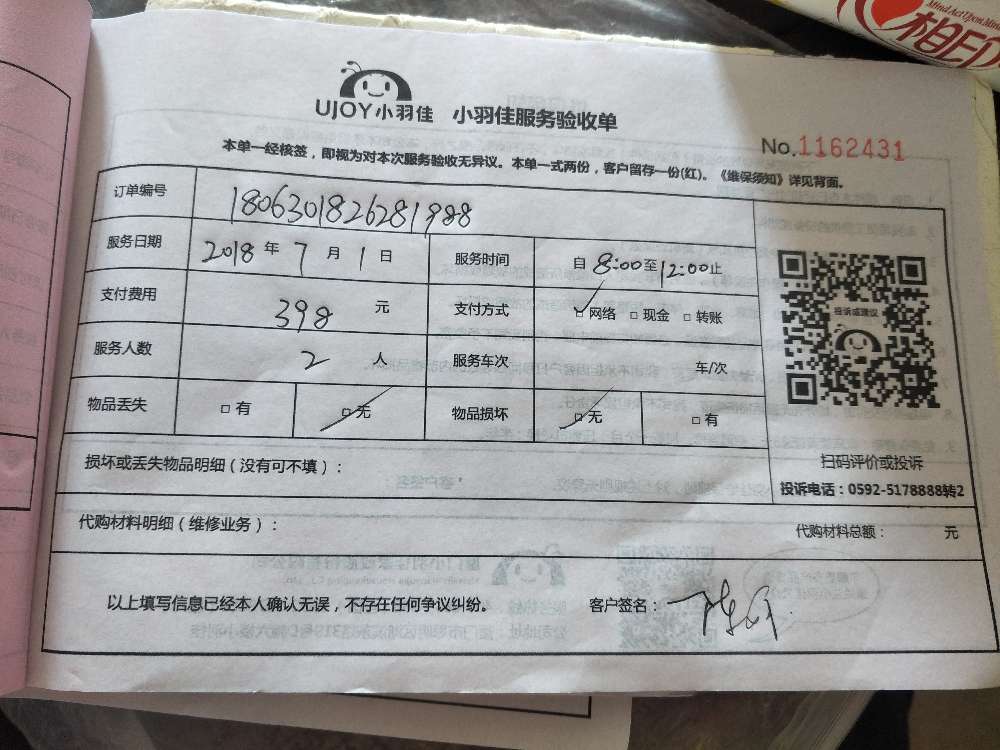 Mind Act Upon Mind
相印
UJOY小羽佳 小羽佳服务验收单
No.1162431
本单一经核签，即视为对本次服务验收无异议。本单一式两份，客户留存一份(红)。《维保须知》详见背面。
订单编号 1806301826281988
服务日期 2018年7月1日 服务时间 自8:00至12:00止
支付费用 398 元 支付方式 □网络 □现金 □转账
投诉或建议
服务人数 2 人 服务车次 车/次
物品丢失 □有 □无 物品损坏 □无 □有
扫码评价或投诉
投诉电话：0592-5178888转2
损坏或丢失物品明细（没有可不填）：
代购材料明细（维修业务）： 代购材料总额： 元
以上填写信息已经本人确认无误，不存在任何争议纠纷。 客户签名：